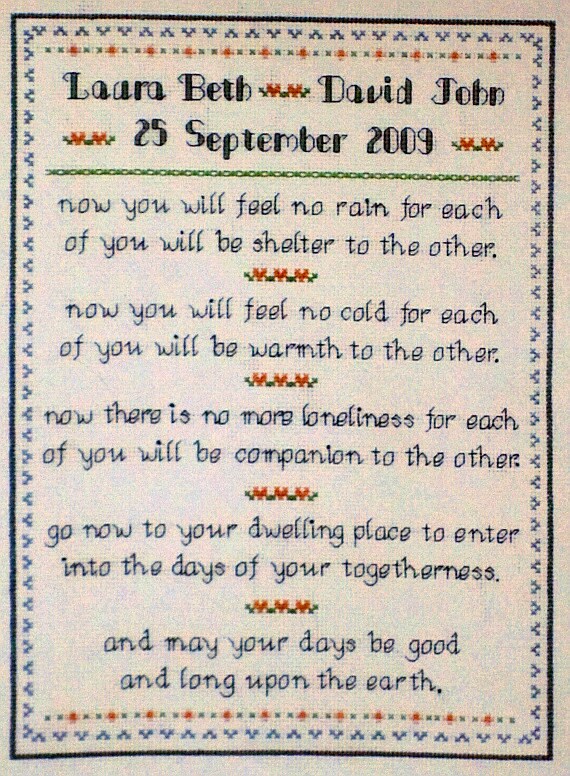 Laura Beth David John
25 September 2009
now you will feel no rain for each
of you will be shelter to the other.
now you will feel no cold for each
of you will be warmth to the other.
now there is no more loneliness for each
of you will be companion to the other.
go now to your dwelling place to enter
into the days of your togetherness.
and may your days be good
and long upon the earth.